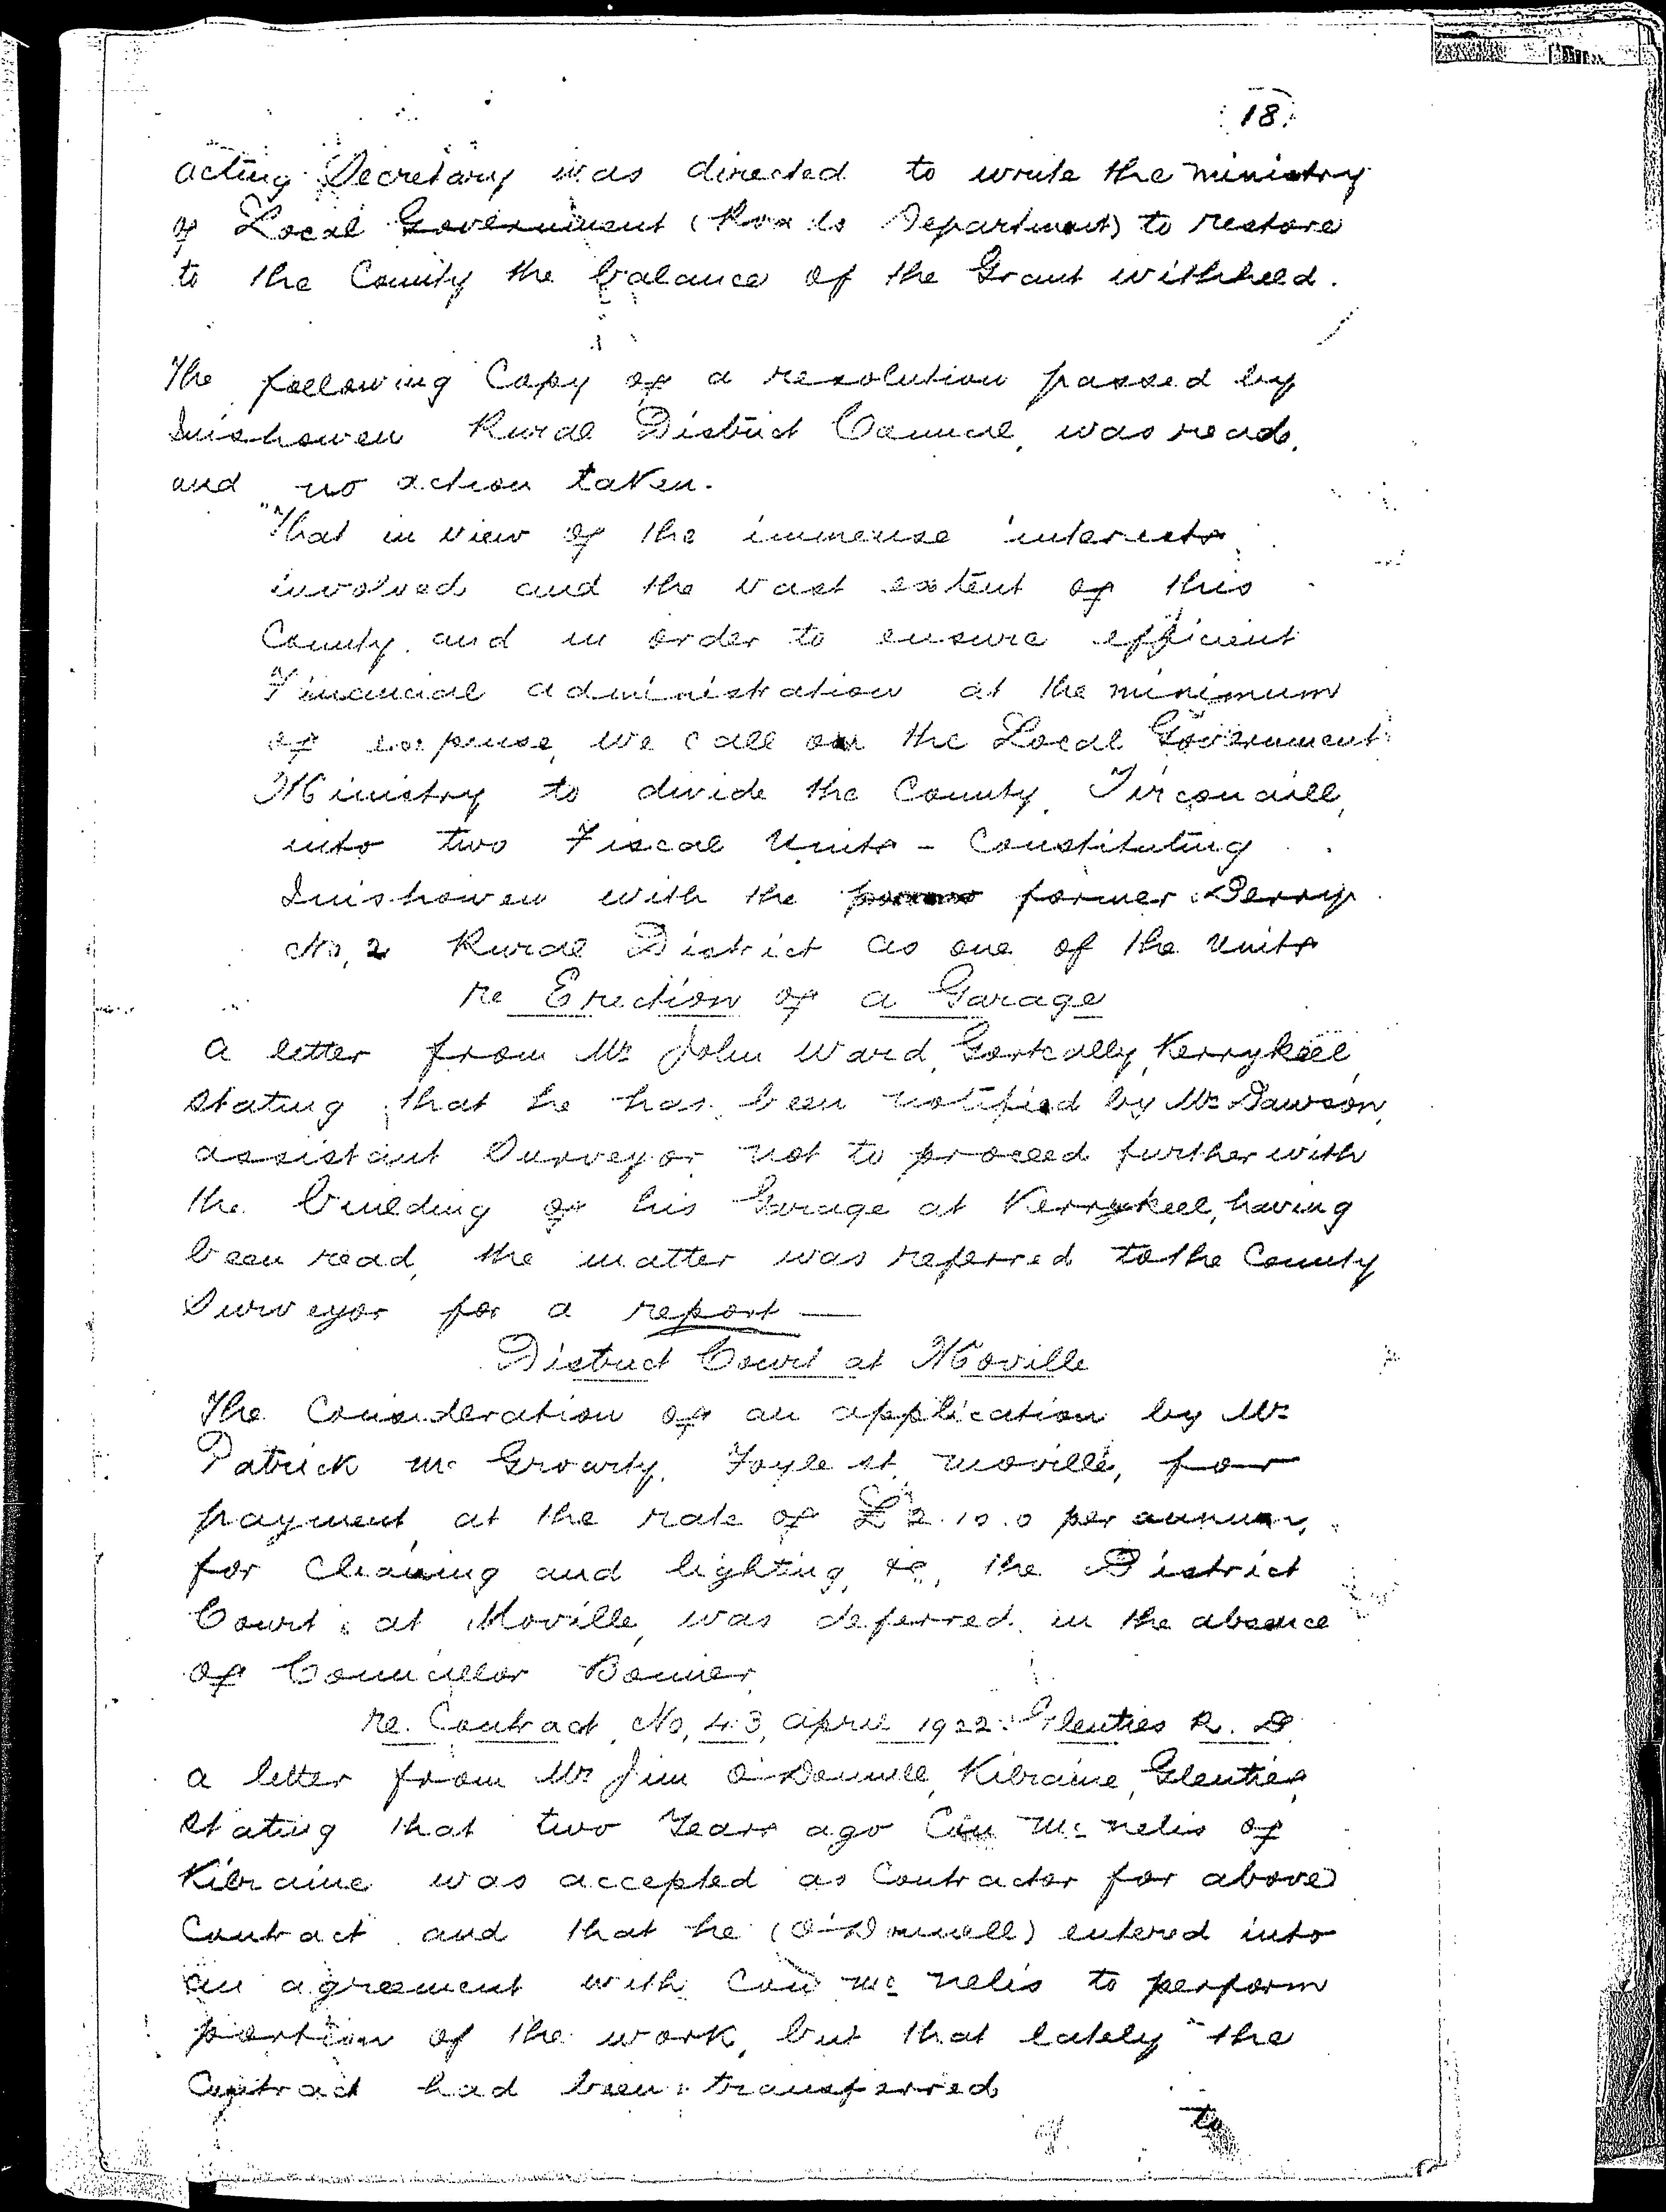 18.
acting Secretary was directed to write the ministry
of Local Government (Roads Department) to restore
to the County the balance of the Grant withheld.
The following Copy of a resolution passed by
Inishowen Rural District Council, was read,
and no action taken.
"That in view of the immense interests
involved and the vast extent of this
County, and in order to ensure efficient
Financial administration at the minimum
of expense, we call on the Local Government
Ministry to divide the County, Tirconaill,
into two Fiscal Units - Constituting
Inishowen with the former Derry
No, 2 Rural District as one of the Units
re Erection of a Garage
a letter from Mr John Ward, Gortcally, Kerrykeel,
stating that he has been notified by Mr Dawson,
assistant Surveyor not to proceed further with
the building of his Garage at Kerrykeel, having
been read, the matter was referred to the County
Surveyor for a report —
District Court at Moville
The Consideration of an application by Mr
Patrick Mc Groarty, Foyle st, Moville, for
payment at the rate of £2.10.0 per annum,
for Cleaning and lighting, &c, the District
Court at Moville, was deferred in the absence
of Councillor Bonner
re. Contract, No, 43, april 1922. Glenties R. D.
a letter from Mr Jim O'Donnell, Kilraine, Glenties,
stating that two Years ago Con Mc nelis of
Kilraine was accepted as Contractor for above
Contract and that he (O'Donnell) entered into
an agreement with Con Mc nelis to perform
portion of the work, but that lately the
Contract had been transferred
to